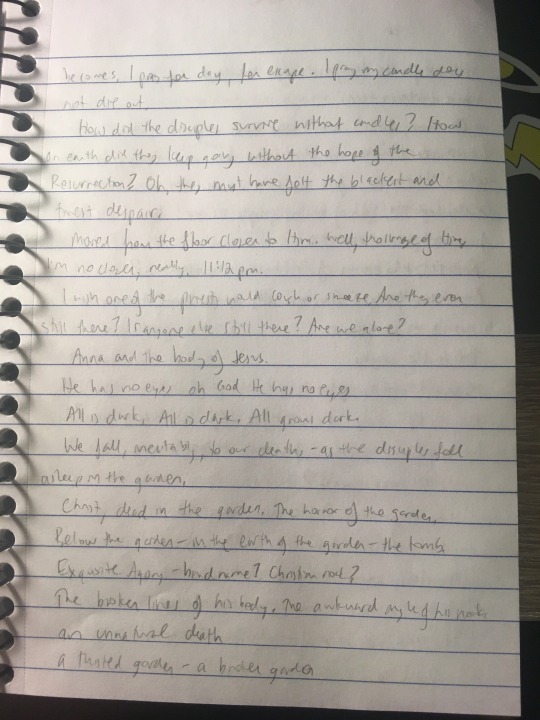 becomes, I pray for day, for escape. I pray my candle does
not die out.
How did the disciples survive without candles? How
on earth did they keep going without the hope of the
Resurrection? Oh, they must have felt the blackest and
truest despair.
Moved from the floor closer to Him. Well, the image of Him,
I'm no closer, really. 11:12 pm.
I wish one of the priests would cough or sneeze. Are they even
still there? Is anyone else still there? Are we alone?
Anna and the body of Jesus.
He has no eyes oh God He has no eyes
All is dark, All is dark, All grows dark.
We fall, inevitably, to our deaths - as the disciples fall
asleep in the garden.
Christ, dead in the garden, The horror of the garden,
Below the garden - in the earth of the garden - the tomb
Exquisite Agony - band name? Christian rock?
The broken lines of his body, The awkward angle of his neck
an unnatural death
a garden - a broken garden